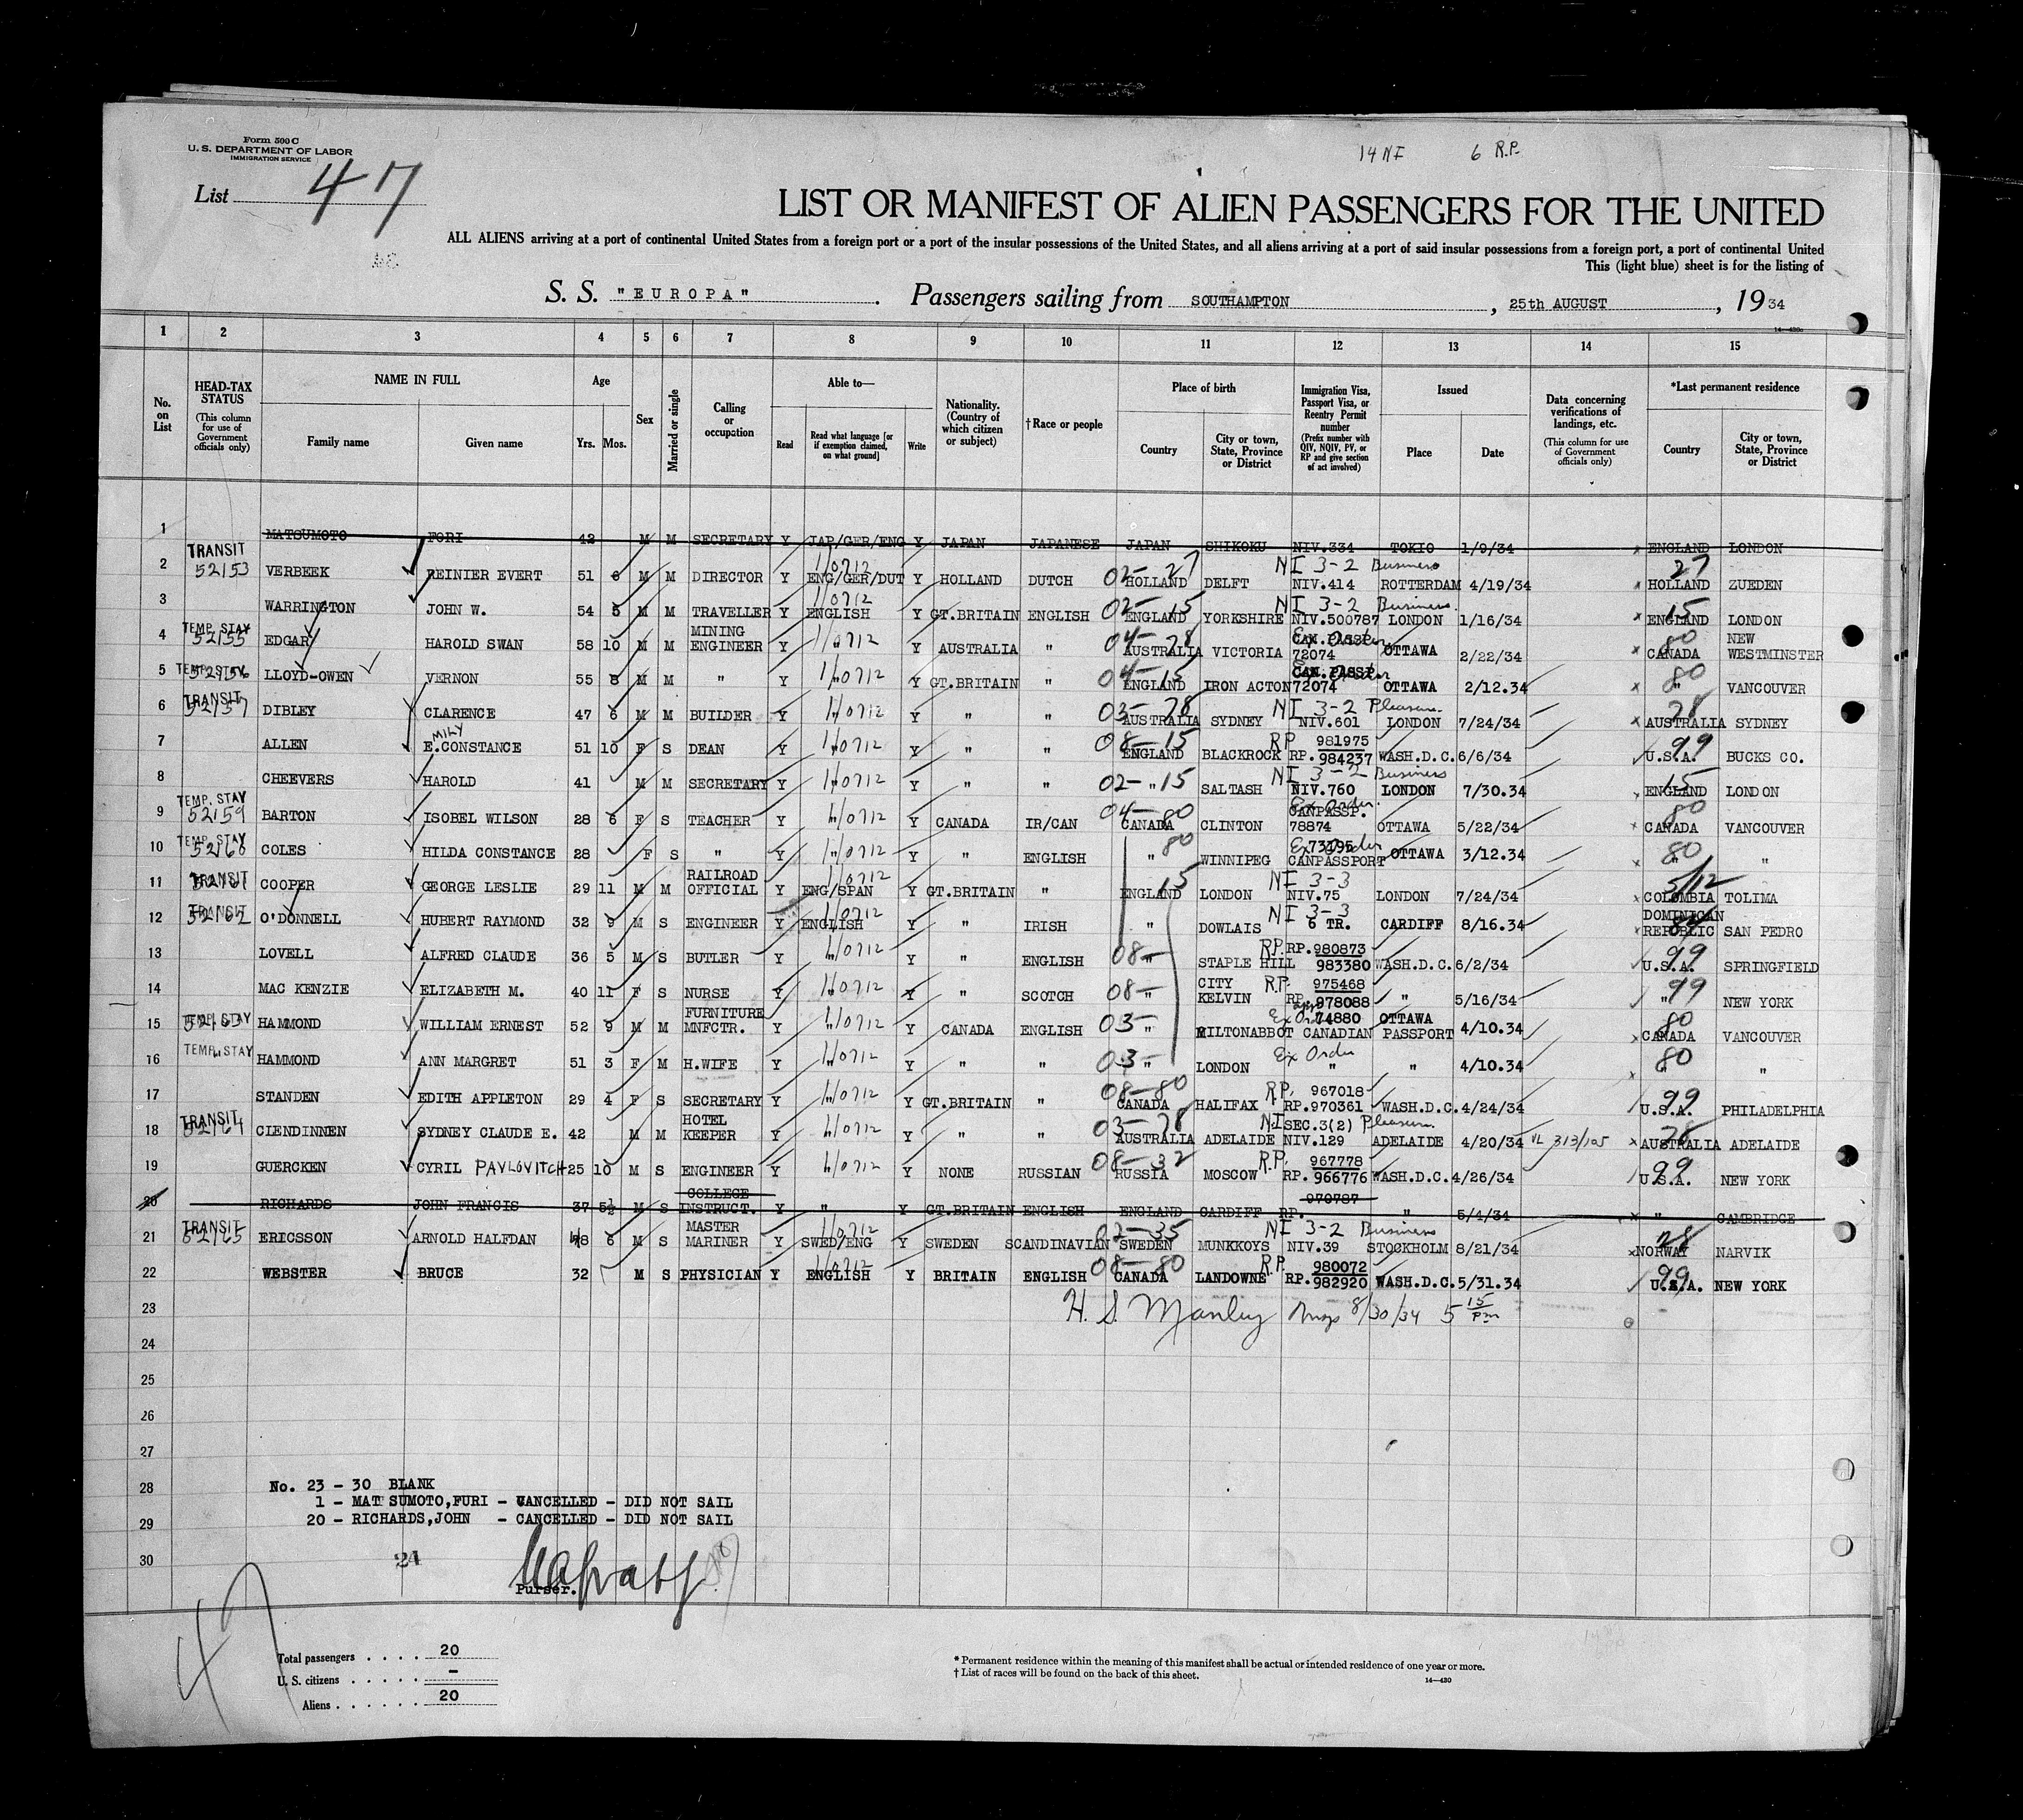 14 NI 6 R.P.
Form 500 C
U. S. DEPARTMENT OF LABOR
IMMIGRATION SERVICE
List 47
LIST OR MANIFEST OF ALIEN PASSENGERS FOR THE UNITED
ALL ALIENS arriving at a port of continental United States from a foreign port or a port of the insular possessions of the United States, and all aliens arriving at a port of said insular possessions from a foreign port, a port of continental United
This (light blue) sheet is for the listing of
S. S. "EUROPA" . Passengers sailing from SOUTHAMPTON , 25th AUGUST , 19 34
14—430
1 2 3 4 5 6 7 8 9 10 11 12 13 14 15
No. on List
HEAD-TAX STATUS (This column for use of Government officials only)
NAME IN FULL Family name Given name
Age Yrs. Mos.
Sex
Married or single
Calling or occupation
Able to— Read Read what language [or if exemption claimed, on what ground] Write
Nationality. (Country of which citizen or subject)
†Race or people
Place of birth Country City or town, State, Province or District
Immigration Visa, Passport Visa, or Reentry Permit number (Prefix number with QIV, NQIV, PV, or RP and give section of act involved)
Issued Place Date
Data concerning verifications of landings, etc. (This column for use of Government officials only)
*Last permanent residence Country City or town, State, Province or District
1 MATSUMOTO FORI 42 M M SECRETARY Y JAP/GER/ENG Y JAPAN JAPANESE JAPAN SHIKOKU NIV.334 TOKIO 1/9/34 x ENGLAND LONDON
2 TRANSIT 52153 VERBEEK REINIER EVERT 51 6 M M DIRECTOR Y ENG/GER/DUT Y HOLLAND DUTCH 02-27 HOLLAND DELFT NI 3-2 Business NIV.414 ROTTERDAM 4/19/34 x 27 HOLLAND ZUEDEN
3 WARRINGTON JOHN W. 54 5 M M TRAVELLER Y ENGLISH Y GT.BRITAIN ENGLISH 02-15 ENGLAND YORKSHIRE NI 3-2 Business NIV.500787 LONDON 1/16/34 x 15 ENGLAND LONDON
4 TEMP. STAY 52155 EDGAR HAROLD SWAN 58 10 M M MINING ENGINEER Y " Y AUSTRALIA " 04-78 AUSTRALIA VICTORIA CAN.PASSP. 72074 OTTAWA 2/22/34 x 80 CANADA NEW WESTMINSTER
5 TEMP. STAY 52156 LLOYD-OWEN VERNON 55 8 M M " Y " Y GT.BRITAIN " 04-15 ENGLAND IRON ACTON CAN.PASSP. 72074 OTTAWA 2/12.34 x 80 " VANCOUVER
6 TRANSIT 52157 DIBLEY CLARENCE 47 6 M M BUILDER Y " Y " " 03-78 AUSTRALIA SYDNEY NI 3-2 Pleasure NIV.601 LONDON 7/24/34 x 78 AUSTRALIA SYDNEY
7 ALLEN E.CONSTANCE MILY 51 10 F S DEAN Y " Y " " 08-15 ENGLAND BLACKROCK RP 981975 RP.984237 WASH.D.C. 6/6/34 99 U.S.A. BUCKS CO.
8 CHEEVERS HAROLD 41 M M SECRETARY Y " Y " " 02-15 " SALTASH NI 3-2 Business NIV.760 LONDON 7/30.34 x 15 ENGLAND LONDON
9 TEMP. STAY 52159 BARTON ISOBEL WILSON 28 6 F S TEACHER Y " Y CANADA IR/CAN 04-80 CANADA CLINTON Ex Order CANPASSP. 78874 OTTAWA 5/22/34 x 80 CANADA VANCOUVER
10 TEMP. STAY 52160 COLES HILDA CONSTANCE 28 F S " Y " Y " ENGLISH 80 " WINNIPEG Ex Order 73195 CANPASSPORT OTTAWA 3/12.34 x 80 " "
11 TRANSIT COOPER GEORGE LESLIE 29 11 M M RAILROAD OFFICIAL Y ENG/SPAN Y GT.BRITAIN " 15 ENGLAND LONDON NI 3-3 NIV.75 LONDON 7/24/34 x 5/12 COLOMBIA TOLIMA
12 TRANSIT 52162 O'DONNELL HUBERT RAYMOND 32 9 M S ENGINEER Y ENGLISH Y " IRISH " DOWLAIS NI 3-3 6 TR. CARDIFF 8/16.34 x DOMINICAN REPUBLIC SAN PEDRO
13 LOVELL ALFRED CLAUDE 36 5 M S BUTLER Y " Y " ENGLISH 08- " STAPLE HILL RP. RP.980873 983380 WASH.D.C. 6/2/34 99 U.S.A. SPRINGFIELD
14 MAC KENZIE ELIZABETH M. 40 11 F S NURSE Y " Y " SCOTCH 08- " CITY KELVIN R.P. 975468 RP.978088 " 5/16/34 99 " NEW YORK
15 TEMP. STAY HAMMOND WILLIAM ERNEST 52 9 M M FURNITURE MNFCTR. Y " Y CANADA ENGLISH 03- " MILTONABBOT Ex Order 74880 CANADIAN PASSPORT OTTAWA 4/10.34 x 80 CANADA VANCOUVER
16 TEMP. STAY HAMMOND ANN MARGRET 51 3 F M H.WIFE Y " Y " " 03- " LONDON Ex Order " " 4/10.34 x 80 " "
17 STANDEN EDITH APPLETON 29 4 F S SECRETARY Y " Y GT.BRITAIN " 08-80 CANADA HALIFAX R.P. 967018 RP.970361 WASH.D.C. 4/24/34 99 U.S.A. PHILADELPHIA
18 TRANSIT 52164 CLENDINNEN SYDNEY CLAUDE E. 42 M M HOTEL KEEPER Y " Y " " 03-78 AUSTRALIA ADELAIDE NI SEC.3(2) Pleasure NIV.129 ADELAIDE 4/20/34 VL 313/105 x 78 AUSTRALIA ADELAIDE
19 GUERCKEN CYRIL PAVLOVITCH 25 10 M S ENGINEER Y " Y NONE RUSSIAN 08-32 RUSSIA MOSCOW R.P. 967778 RP. 966776 WASH.D.C. 4/26/34 99 U.S.A. NEW YORK
20 RICHARDS JOHN FRANCIS 37 5½ M S COLLEGE INSTRUCT. Y " Y GT.BRITAIN ENGLISH ENGLAND CARDIFF RP. 970787 " 5/4/34 x " CAMBRIDGE
21 TRANSIT 52165 ERICSSON ARNOLD HALFDAN 48 6 M S MASTER MARINER Y SWED/ENG Y SWEDEN SCANDINAVIAN 02-35 SWEDEN MUNKKOYS NI 3-2 Business NIV.39 STOCKHOLM 8/21/34 x 28 NORWAY NARVIK
22 WEBSTER BRUCE 32 M S PHYSICIAN Y ENGLISH Y BRITAIN ENGLISH 08-80 CANADA LANDOWNE R.P. 980072 RP.982920 WASH.D.C. 5/31.34 99 U.S.A. NEW YORK
23 H. S. Manley 8/30/34 5 15 pm
24
25
26
27
28 No. 23 - 30 BLANK
1 - MAT SUMOTO,FURI - CANCELLED - DID NOT SAIL
29 20 - RICHARDS,JOHN - CANCELLED - DID NOT SAIL
30 24
Purser.
47
Total passengers . . . . 20
U. S. citizens . . . . . -
Aliens . . . . . . 20
* Permanent residence within the meaning of this manifest shall be actual or intended residence of one year or more.
† List of races will be found on the back of this sheet.
14—430